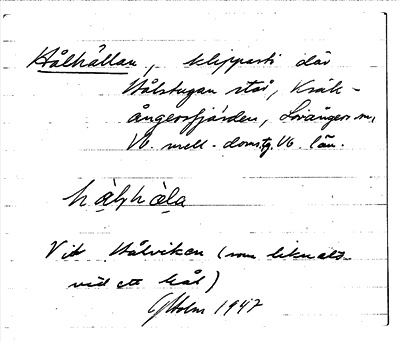 Hålhällan, klipparti där
Hålstugan står, Kräk-
ångersfjärden, Lövångers sn,
Vb. mell. domsg. Vb. län.
hàl̥hæ̀la
Vid Hålviken (som liknats
vid ett hål)
G Holm 1947